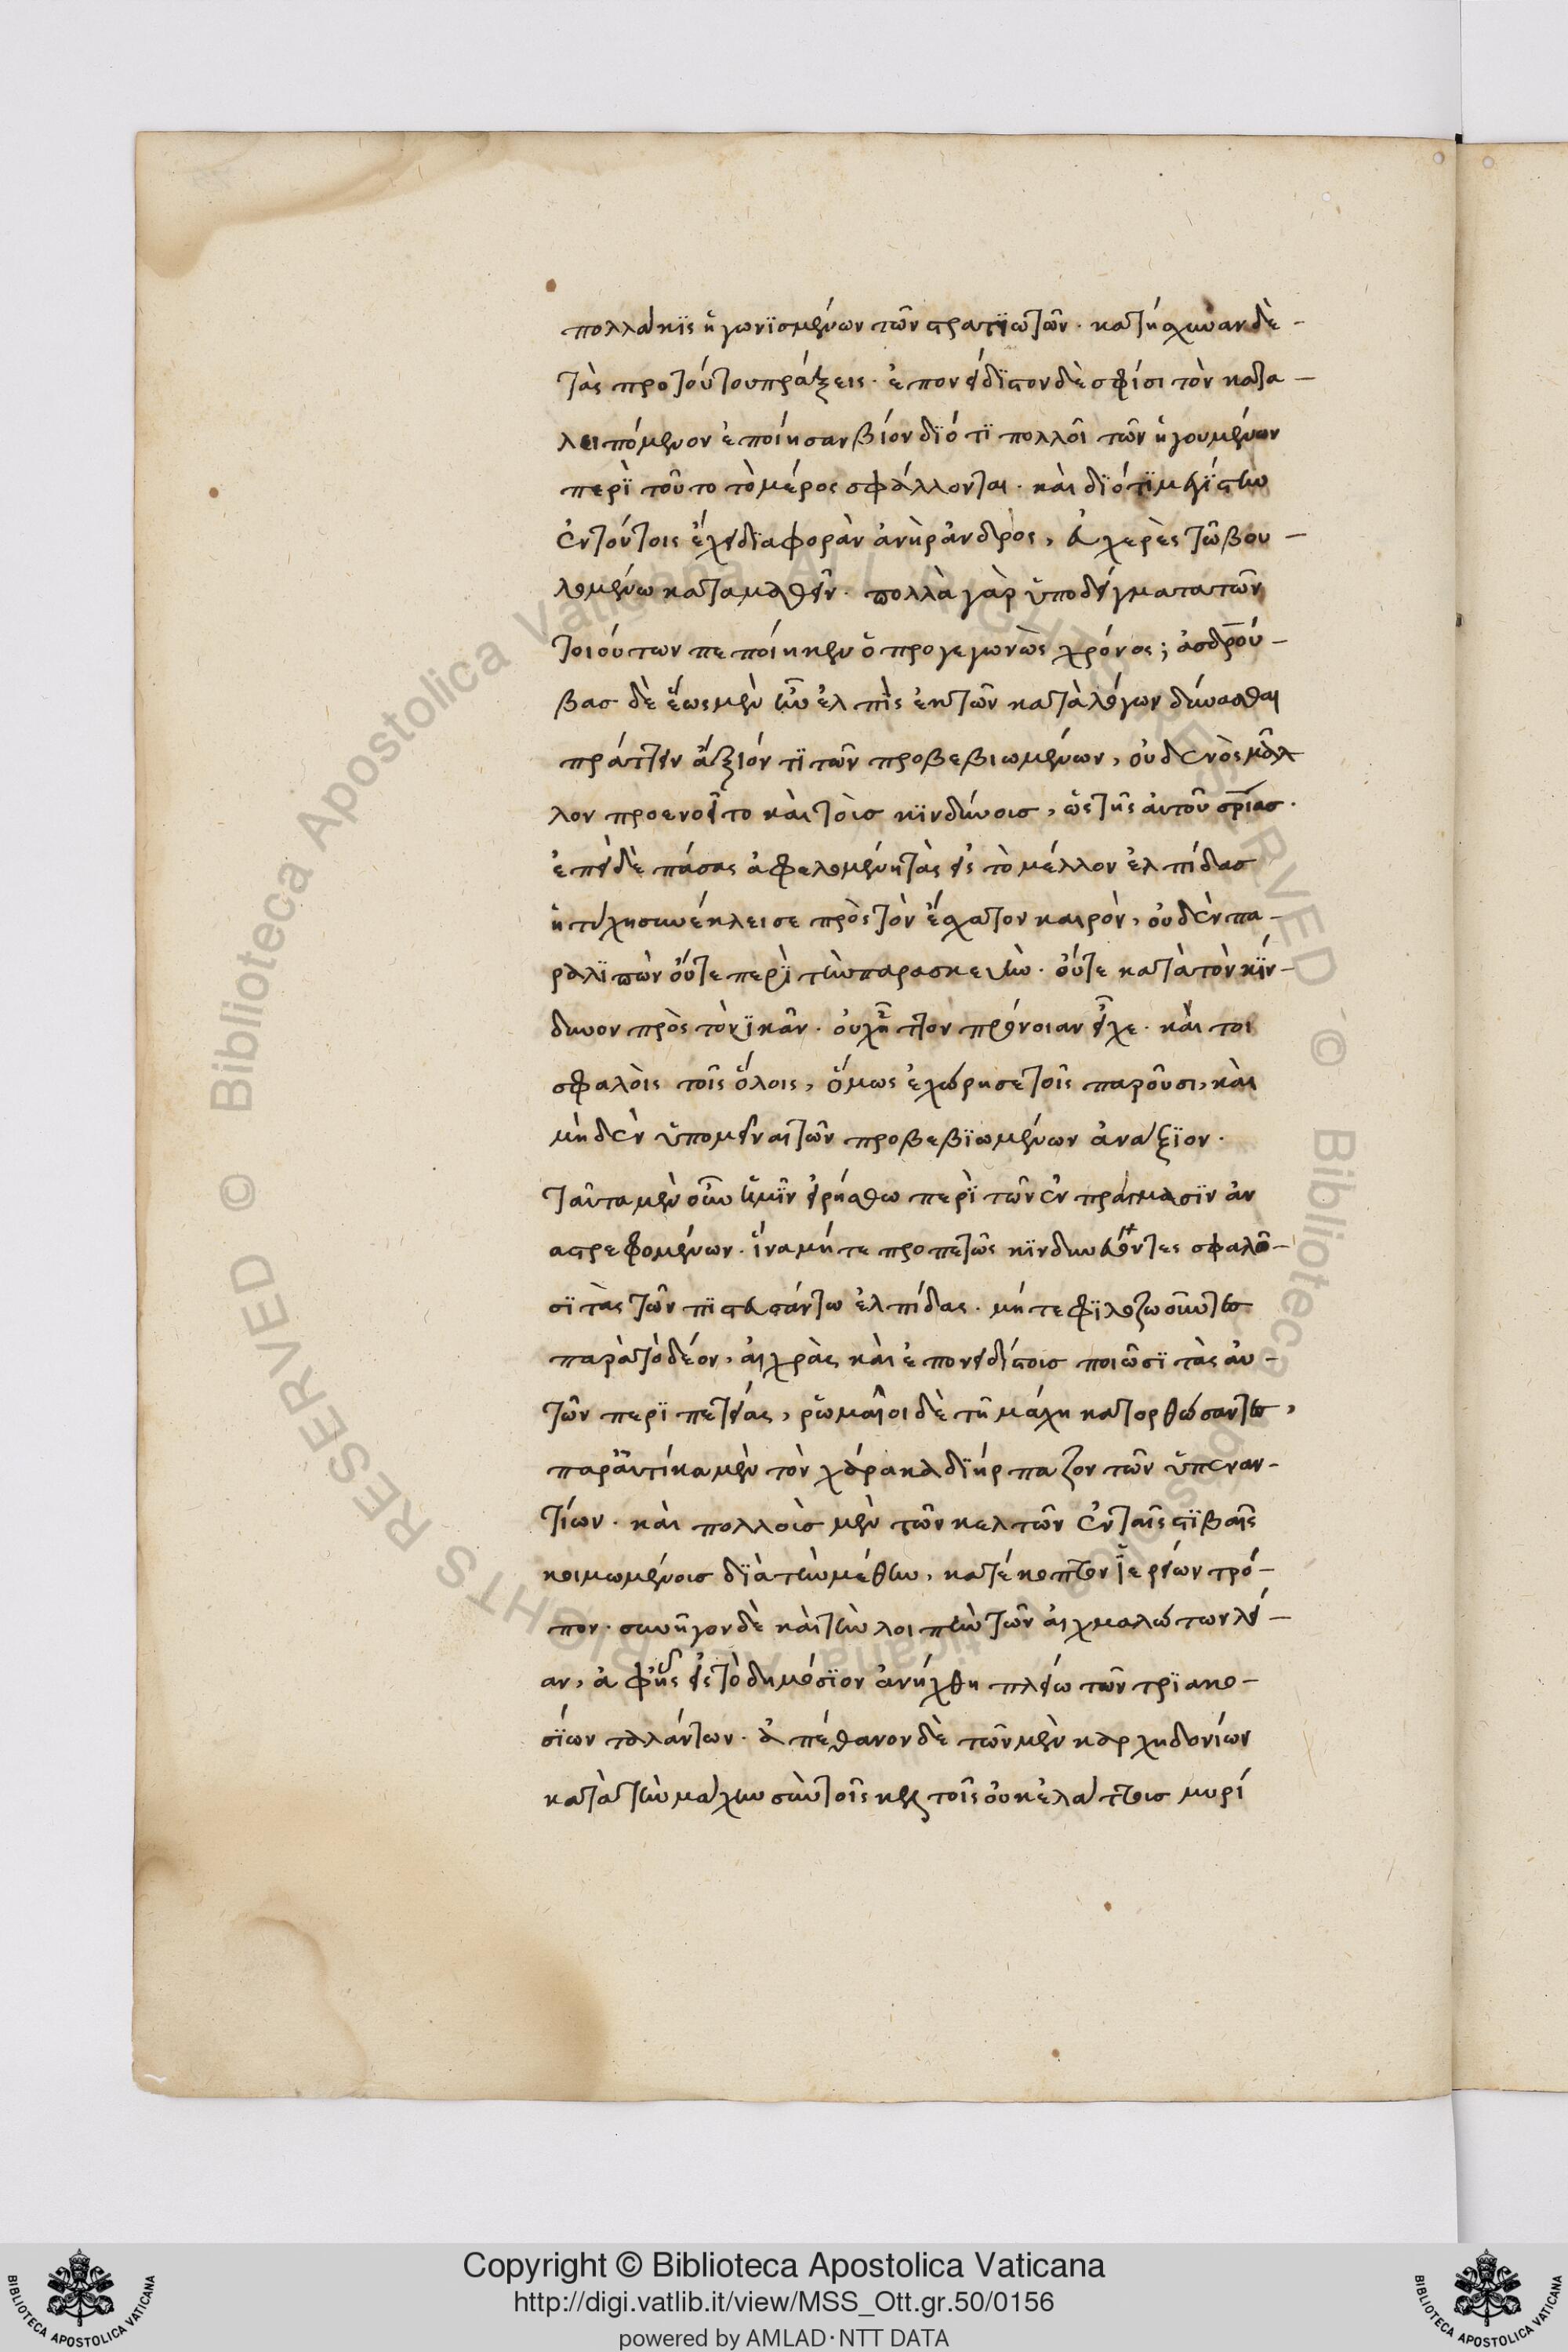 πολλάκϊς ἠγωνϊσμένων τῶν στρατϊωτῶν. κατήσχυναν δὲ -
τὰς προ τούτου πράξεις. ἐπονείδϊστον δὲ σφίσι τὸν κατα -
λειπόμενον ἐποίησαν βίον διότϊ πολλοῖ τῶν ἡγουμένων
περῒ τοῦτο τὸ μέρος σφάλλονται. καὶ διότϊ μεγίστην
ἐν τούτοις ἔχει διαφορὰν ἀνὴρ ἀνδρὸς, εὐχερὲς τῶ βου -
λομένω καταμαθεῖν. πολλὰ γὰρ ὑποδείγματα τῶν
τοιούτων πεποίηκεν ὁ προγεγωνὼς χρόνος; ἀσδρού -
βασ δὲ ἕως μὲν ἦν ἐλπὶς ἐκ τῶν κατὰ λόγων δύνασθαι
πράττειν ἄξιόν τϊ τῶν προβεβιωμένων, οὐδενὸς μᾶλ
λον προενοεῖτο καὶ τοὶσ κϊνδύνοισ, ὡς τῆς αὑτοῦ σ͞ρίασ.
ἐπεὶ δὲ πάσας ἀφελομένη τὰς εἰς τὸ μέλλον ἐλπίδασ
ἡ τύχη συνέκλεισε πρὸς τὸν ἔσχατον καιρὸν, οὐδὲν πα -
ραλϊπὼν οὔτε περῒ τὴν παρασκευὴν. οὔτε κατὰ τὸν κίν -
δυνον πρὸς τὸ νϊκᾶν. οὐχ ἧττον πρόνοιαν εἶχε. καί τοι
σφαλὸις τοῖς ὅλοις, ὅμως ἐχώρησε τοῖς παροῦσι, καὶ
μηδὲν ὑπομεῖναι τῶν προβεβϊωμένων ἀνάξϊον.
ταῦτα μὲν οὖν ἡμῖν εἰρήσθω περῒ τῶν ἐν πράγμασϊν ἀν
αστρεφομένων. ἵνα μήτε προπετῶς κϊνδυνεύοντες σφαλῶ -
σϊ τὰς τῶν πϊστευσάντω ἐλπίδας. μήτε φϊλοζωοῦντες
παρὰ τὸ δέον, αἰσχρὰς καὶ ἐπονειδίστοισ ποιῶσϊ τὰς αὑ -
τῶν περϊπετείας, ῥωμαῖοι δὲ τῆ μάχη κατορθώσαντες,
παραὐτίκα μὲν τὸν χάρακα διήρπαζον τῶν ὑπεναν -
τίων. καὶ πολλοὺσ μὲν τῶν κελτῶν ἐν ταῖς στϊβαῖς
κοιμωμένοισ διὰ τὴν μέθην, κατέκοπτον ἱερείων τρό -
πον. συνῆγον δὲ καὶ τὴν λοιπὴν τῶν αἰχμαλώτων λεί -
αν, ἀφ' ἧς εἰς τὸ δημόσϊον ἀνήχθη πλείω τῶν τρϊακο -
σίων ταλάντων. ἀπέθανον δὲ τῶν μὲν καρχηδονίων
κατὰ τὴν μάχην σὺν τοῖς κελτοῖς οὐκ ἐλάττοισ μυρί
Copyright © Biblioteca Apostolica Vaticana
http://digi.vatlib.it/view/MSS_Ott.gr.50/0156
powered by AMLAD·NTT DATA